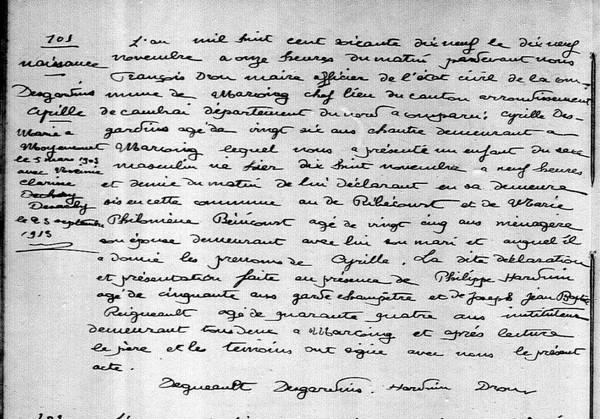 101
naissance
Desgardins
Cyrille
Marié à
Moyenneville
le 5 mars 1903
avec
clarisse
Décédé
le 23 septembre
1913
L'an mil huit cent soixante dix neuf le dix neuf
novembre à onze heures du matin pardevant nous
François Drou maire officier de l'état civil de la com-
mune de Marcoing chef lieu du canton arrondissement
de cambrai département du nord a comparu : cyrille Des-
gardins agé de vingt six ans chantre demeurant à
Marcoing lequel nous a présenté un enfant du sexe
masculin né hier dix huit novembre à neuf heures
et demie du matin de lui déclarant en sa demeure
sis en cette commune au de Ribécourt et de Marie
Philomène Bénicourt agé de vingt cinq ans ménagère
son épouse demeurant avec lui son mari et auquel il
a donné les prenoms de Cyrille. La dite déclaration
et présentation faite au présence de Philippe Harduin
agé de cinquante ans garde champêtre et de Joseph Jean Baptiste
agé de quarante quatre ans instituteur
demeurant tous deux à Marcoing et après lecture
le père et les temoins ont signé avec nous le présent
acte.
Desgardins. Harduin Drou